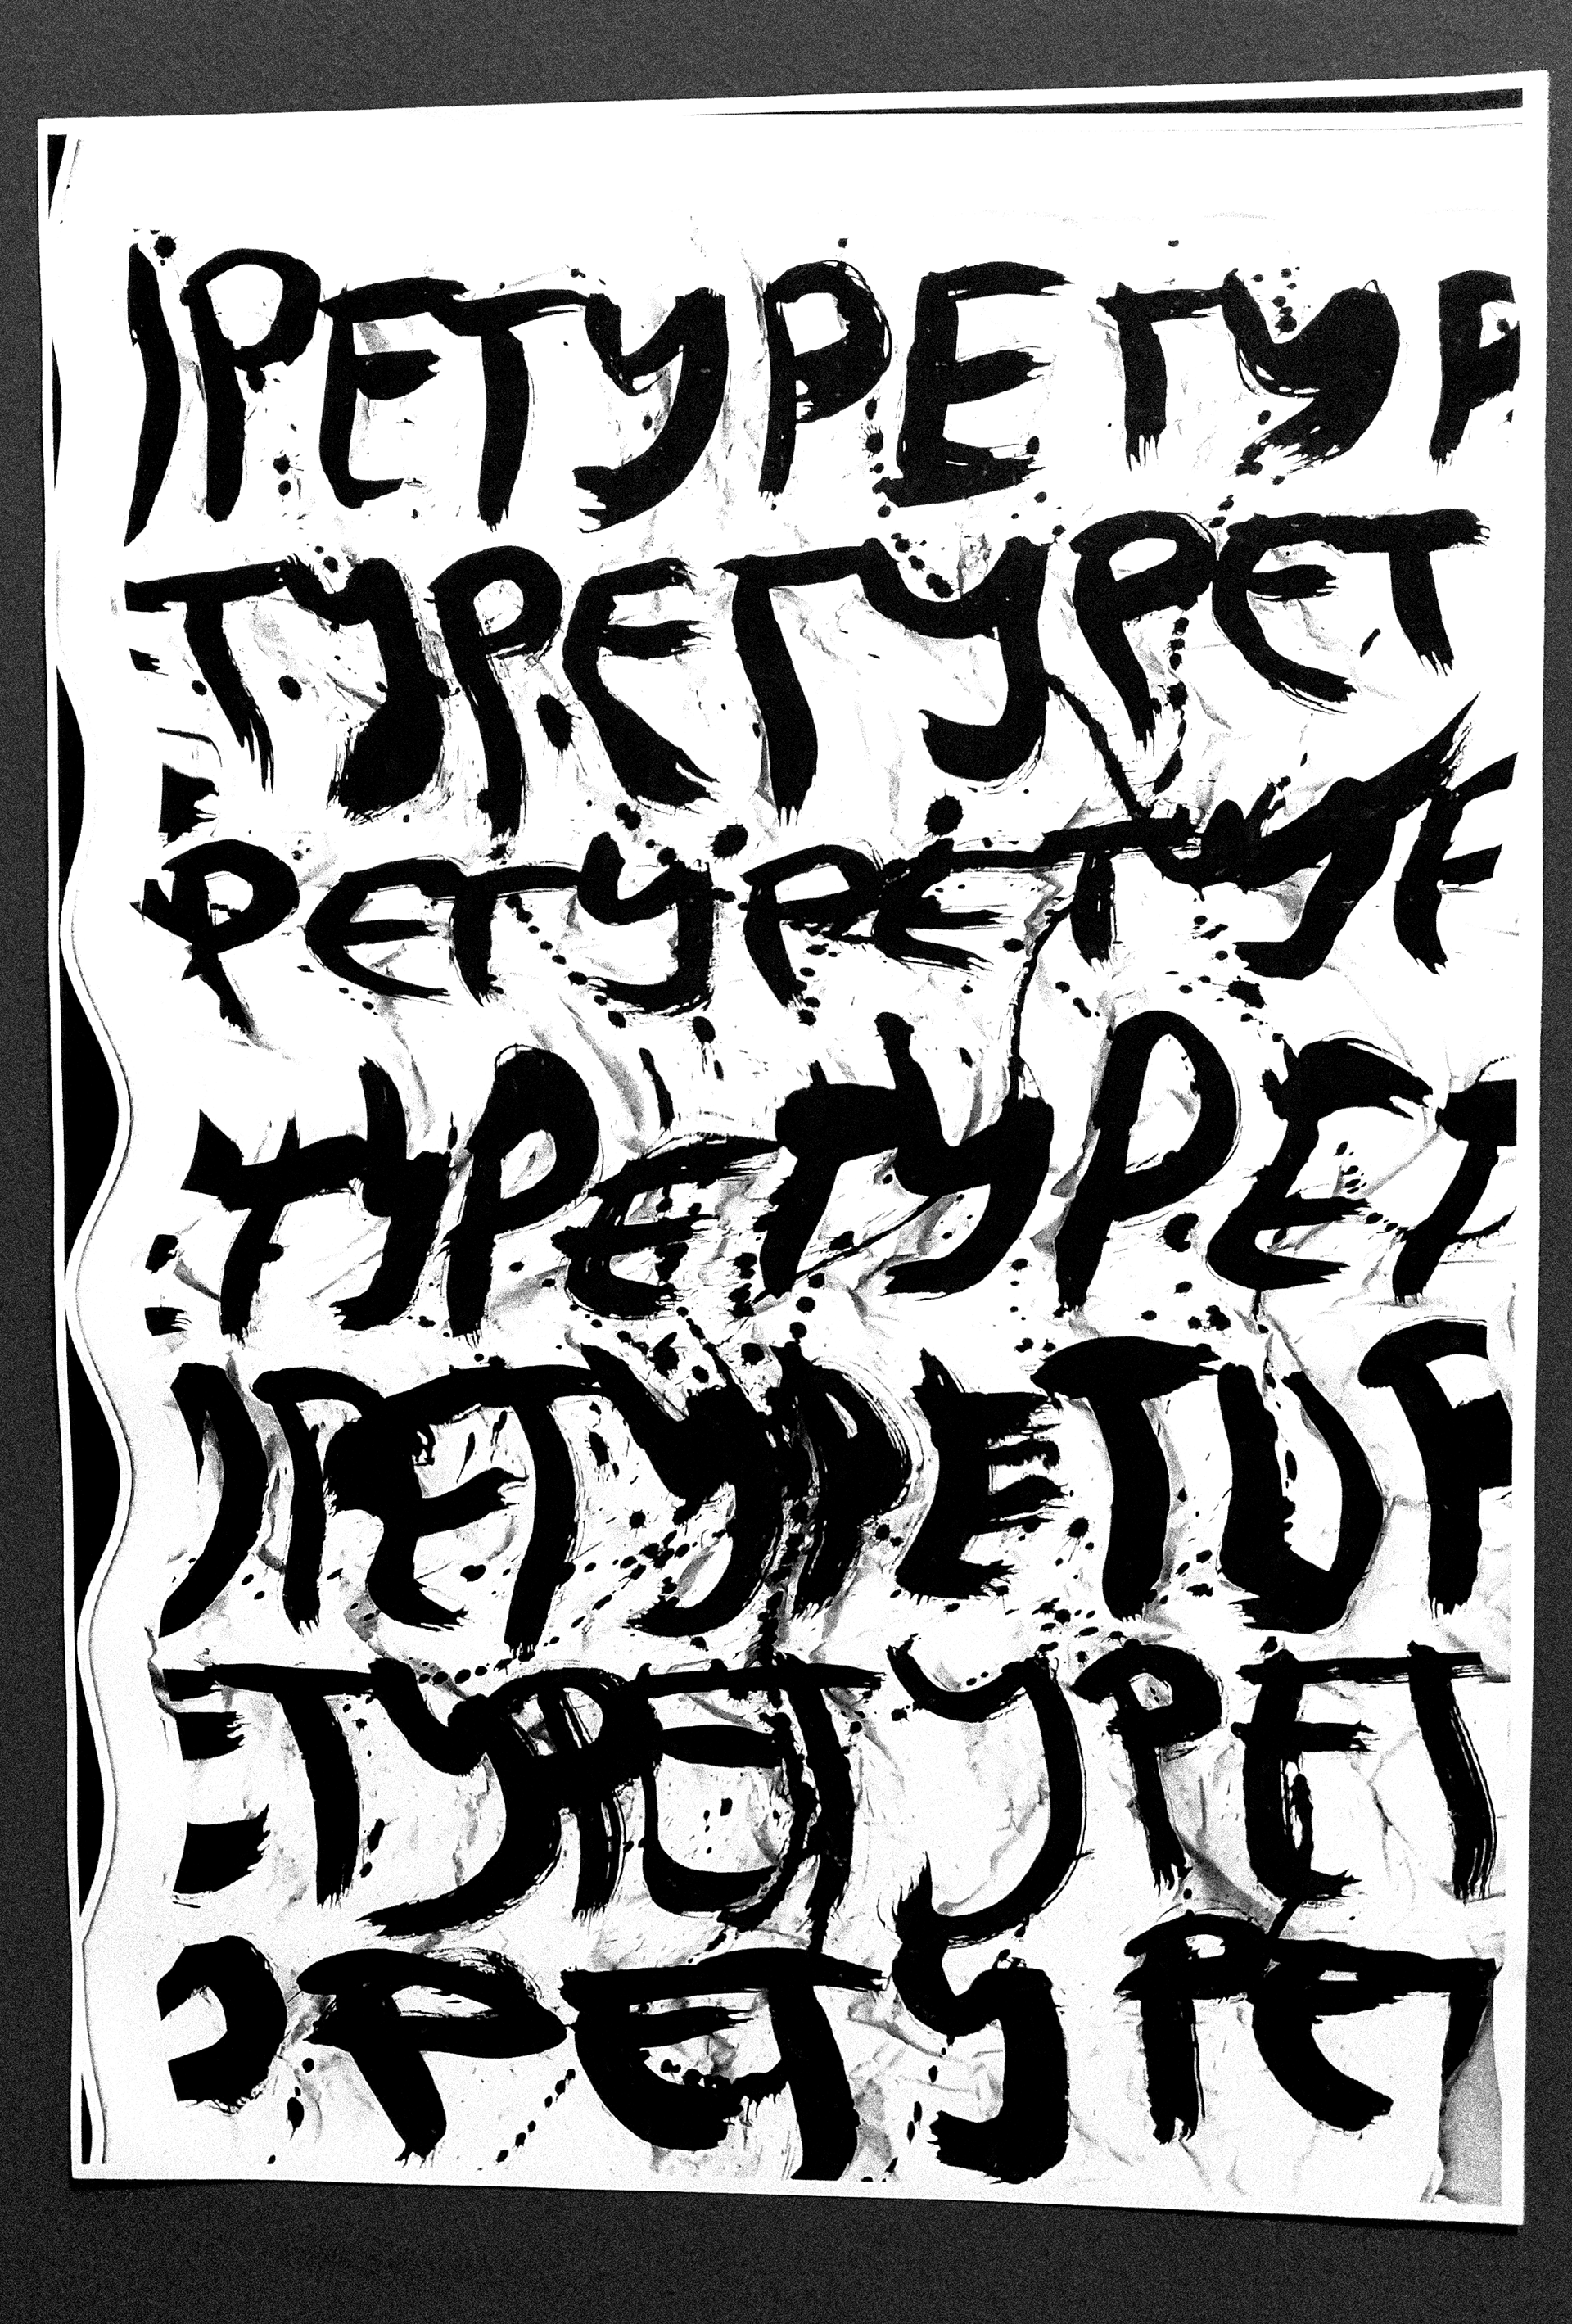 YPETYPETYP
ETYPETYPET
PETYPETYP
ETYPETYPET
YPETYPETYP
ETYPETYPET
YPETYPET